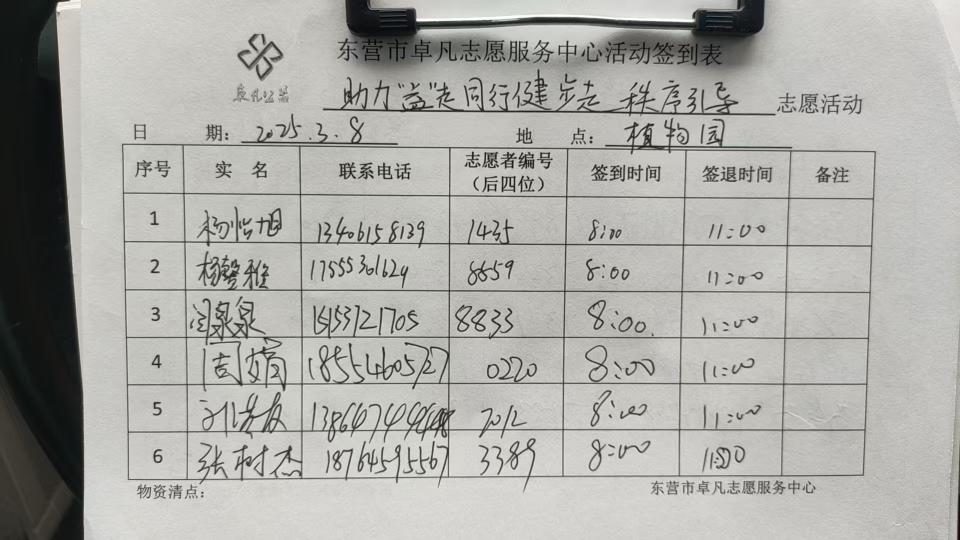 东营市卓凡志愿服务中心活动签到表
卓凡公益
助力"益"起同行健步走 秩序引导 志愿活动
日 期: 2025.3.8 地 点: 植物园
序号 实 名 联系电话 志愿者编号(后四位) 签到时间 签退时间 备注
1 杨怡旭 13406158139 1435 8:00 11:00
2 杨馨雅 17555301624 8659 8:00 11:00
3 闫泉泉 15153721705 8833 8:00. 11:00
4 周娟 18554605727 0220 8:00 11:00
5 2012 8:00 11:00
6 张树杰 18764595567 3389 8:00 11:00
物资清点: 东营市卓凡志愿服务中心